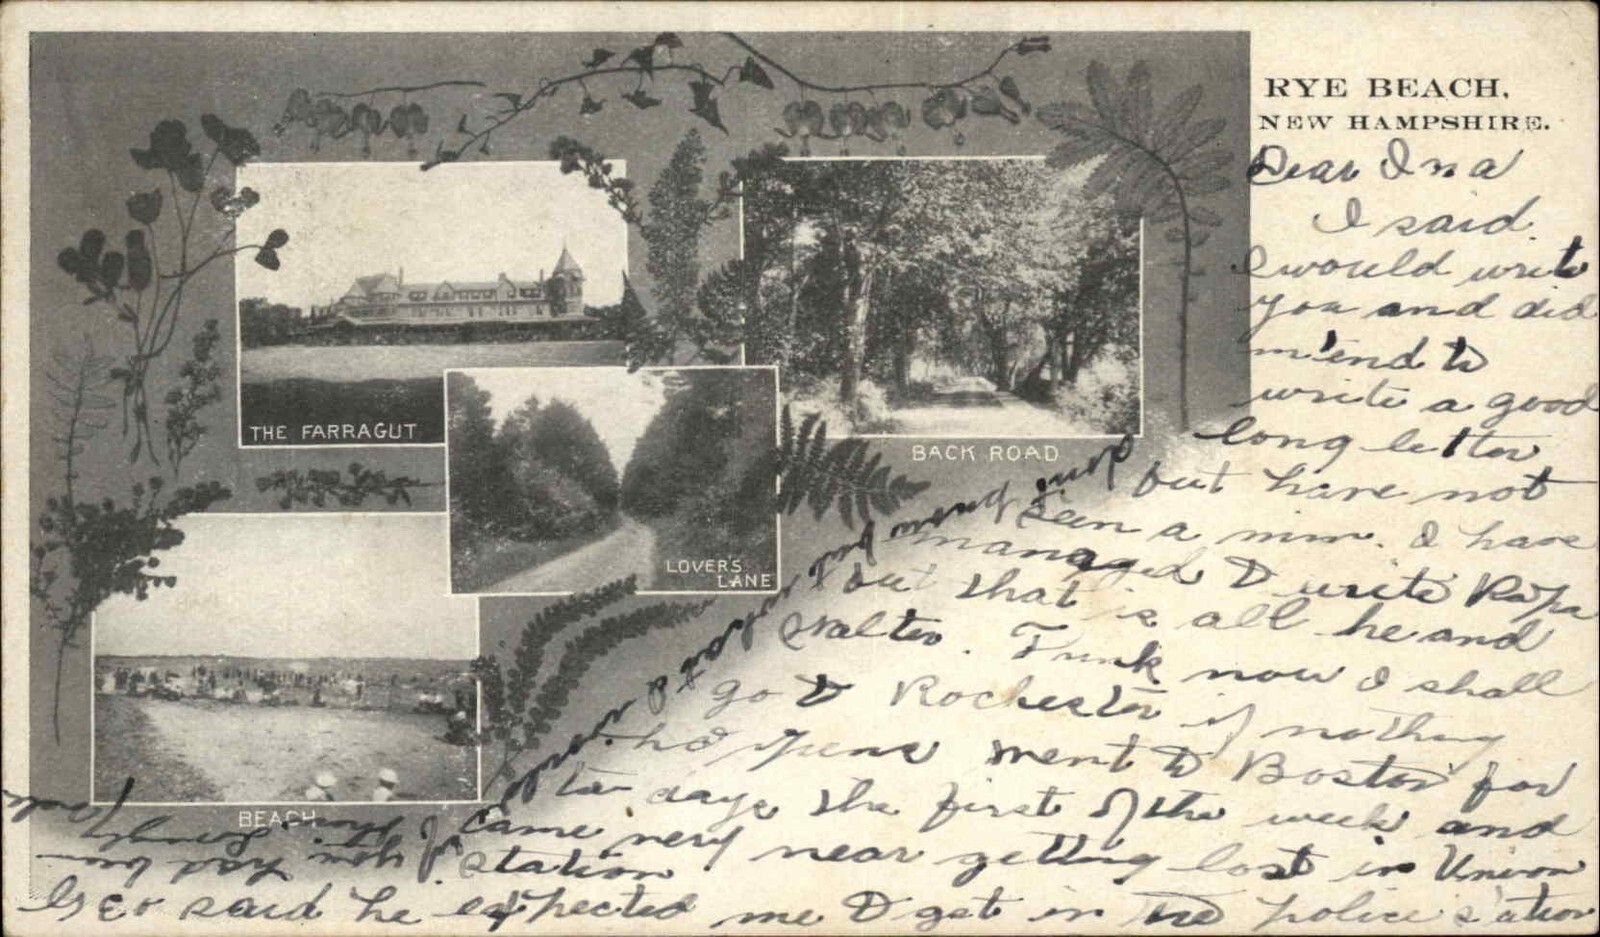 RYE BEACH,
NEW HAMPSHIRE.
THE FARRAGUT
BACK ROAD
LOVER'S
LANE
BEACH
Dear Ina
I said
I would write
you and did
intend to
write a good
long letter
but have not
seen a min. I have
managed to write Papa
but that is all he and
Walter. Think now I shall
go to Rochester if nothing
happens went to Boston for
days the first of the week and
came very near getting lost in Union
station
Geo said he expected me to get in the police station
if you had